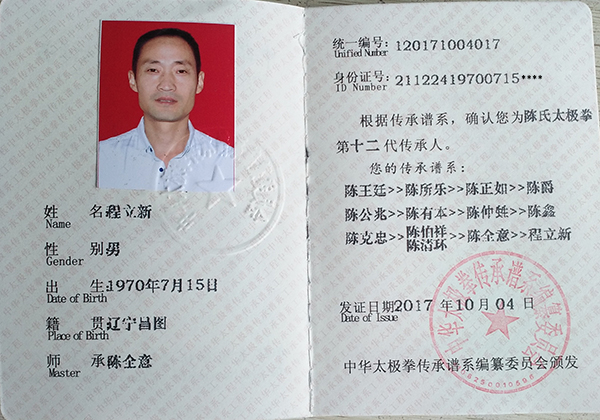 姓 名 程立新
Name
性 别 男
Gender
出 生 1970年7月15日
Date of Birth
籍 贯 辽宁昌图
Place of Birth
师 承 陈全意
Master
统一编号: 120171004017
Unified Number
身份证号: 21122419700715****
ID Number
根据传承谱系,确认您为陈氏太极拳
第十二代传承人。
您的传承谱系:
陈王廷>>陈所乐>>陈正如>>陈爵
陈公兆>>陈有本>>陈仲甡>>陈鑫
陈克忠>>陈伯祥 陈清环>>陈全意>>程立新
发证日期 2017 年 10 月 04 日
Date of Issue
中华太极拳传承谱系编纂委员会
中华太极拳传承谱系编纂委员会颁发